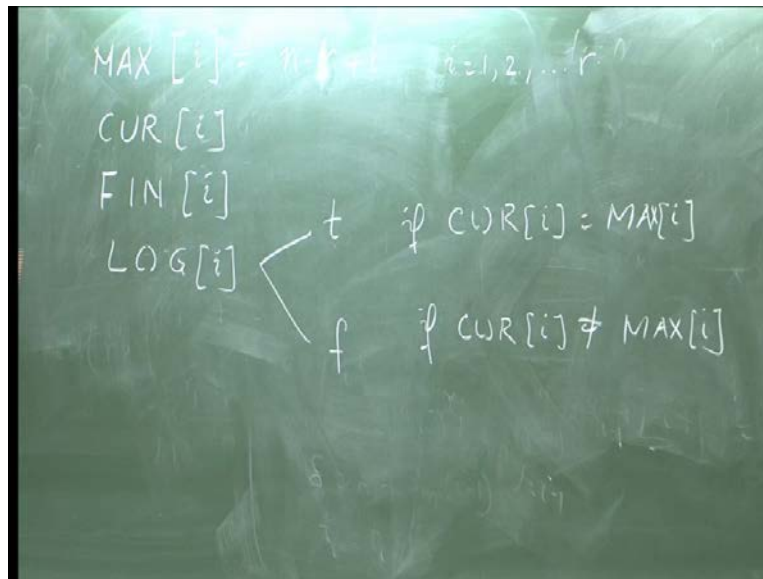 MAX [i] = n-r+i i=1, 2, ... r
CUR [i]
FIN [i]
LOG [i]
t if CUR[i] = MAX[i]
f if CUR[i] ≠ MAX[i]